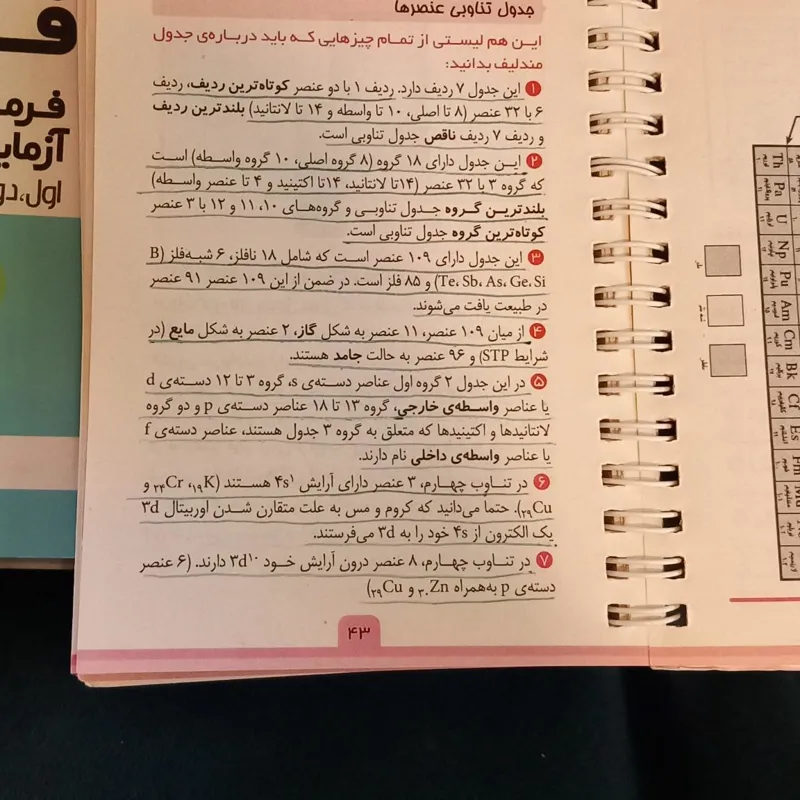 جدول تناوبی عنصرها
این هم لیستی از تمام چیزهایی که باید درباره‌ی جدول
مندلیف بدانید:
۱ این جدول ۷ ردیف دارد. ردیف ۱ با دو عنصر کوتاه‌ترین ردیف، ردیف
۶ با ۳۲ عنصر (۸ تا اصلی، ۱۰ تا واسطه و ۱۴ تا لانتانید) بلندترین ردیف
و ردیف ۷ ردیف ناقص جدول تناوبی است.
۲ این جدول دارای ۱۸ گروه (۸ گروه اصلی، ۱۰ گروه واسطه) است
که گروه ۳ با ۳۲ عنصر (۱۴تا لانتانید، ۱۴تا اکتینید و ۴ تا عنصر واسطه)
بلندترین گروه جدول تناوبی و گروه‌های ۱۰، ۱۱ و ۱۲ با ۳ عنصر
کوتاه‌ترین گروه جدول تناوبی است.
۳ این جدول دارای ۱۰۹ عنصر است که شامل ۱۸ نافلز، ۶ شبه‌فلز (B
Te، Sb، As، Ge، Si) و ۸۵ فلز است. در ضمن از این ۱۰۹ عنصر ۹۱ عنصر
در طبیعت یافت می‌شوند.
۴ از میان ۱۰۹ عنصر، ۱۱ عنصر به شکل گاز، ۲ عنصر به شکل مایع (در
شرایط STP) و ۹۶ عنصر به حالت جامد هستند.
۵ در این جدول ۲ گروه اول عناصر دسته‌ی s، گروه ۳ تا ۱۲ دسته‌ی d
یا عناصر واسطه‌ی خارجی، گروه ۱۳ تا ۱۸ عناصر دسته‌ی p و دو گروه
لانتانیدها و اکتینیدها که متعلق به گروه ۳ جدول هستند، عناصر دسته‌ی f
یا عناصر واسطه‌ی داخلی نام دارند.
۶ در تناوب چهارم، ۳ عنصر دارای آرایش ۴s¹ هستند (₁₉K، ₂₄Cr و
₂₉Cu). حتماً می‌دانید که کروم و مس به علت متقارن شدن اوربیتال ۳d
یک الکترون از ۴s خود را به ۳d می‌فرستند.
۷ در تناوب چهارم، ۸ عنصر درون آرایش خود ۳d¹⁰ دارند. (۶ عنصر
دسته‌ی p به‌همراه ₃₀Zn و ₂₉Cu)
۴۳
فرمو
آزمای
اول، دو
Th
Pa
U
Np
Pu
Am
Cm
Bk
Cf
Es
Fm